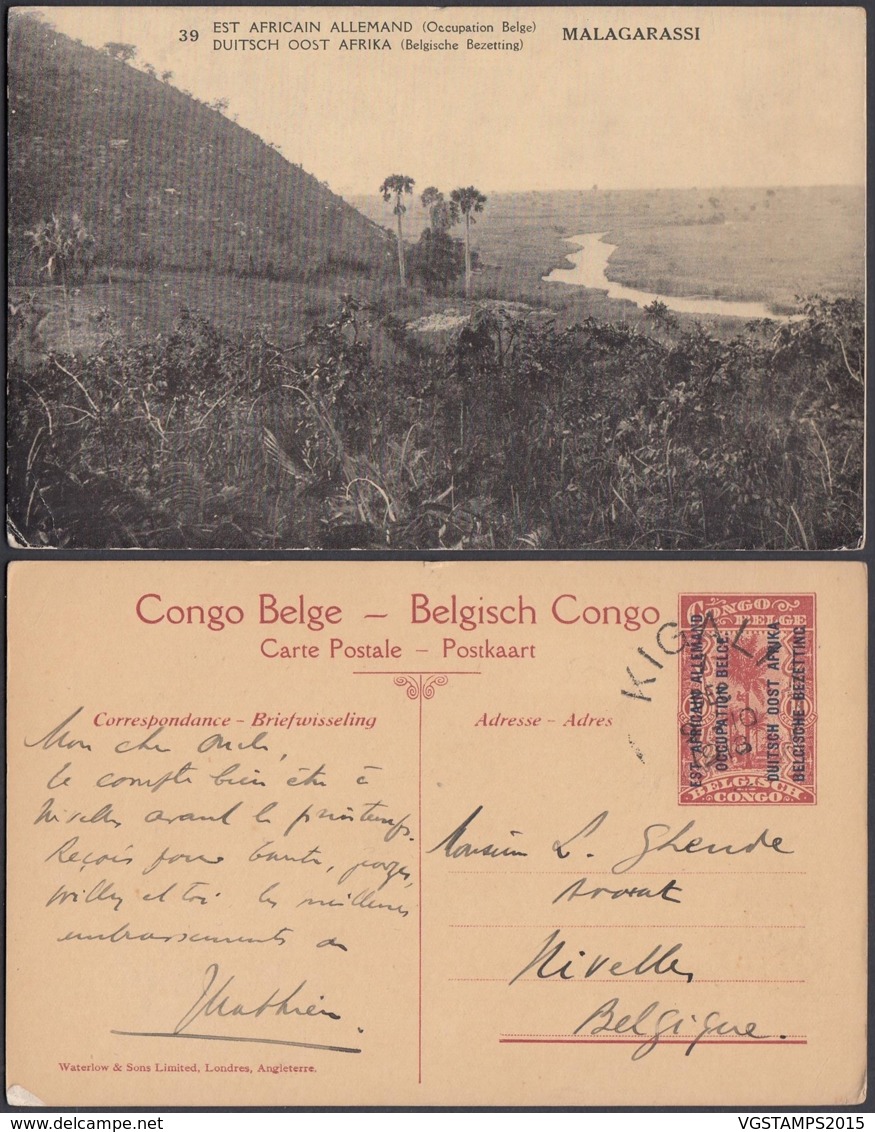 39 EST AFRICAIN ALLEMAND (Occupation Belge) MALAGARASSI
DUITSCH OOST AFRIKA (Belgische Bezetting)
Congo Belge – Belgisch Congo
Carte Postale – Postkaart
Correspondance – Briefwisseling
Adresse – Adres
CONGO BELGE
BELGISCH CONGO
EST AFRICAIN ALLEMAND
OCCUPATION BELGE.
DUITSCH OOST AFRIKA
BELGISCHE BEZETTING.
KIGALI
Mon cher Oncle,
Je compte bien être à
Nivelles avant le printemps.
Reçois pour tante,
Willy et toi les meilleurs
embrassements de
Mathieu.
Monsieur L. Gheude
Avocat
Nivelles
Belgique.
Waterlow & Sons Limited, Londres, Angleterre.
www.delcampe.net
VGSTAMPS2015